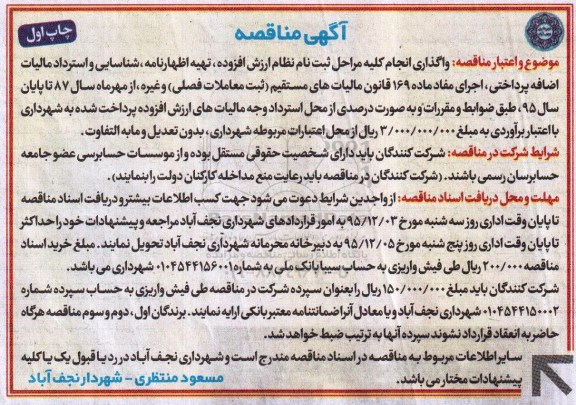 آگهی مناقصه
چاپ اول
موضوع و اعتبار مناقصه: واگذاری انجام کلیه مراحل ثبت نام نظام ارزش افزوده، تهیه اظهارنامه، شناسایی و استرداد مالیات
اضافه پرداختی، اجرای مفاد ماده ۱۶۹ قانون مالیات های مستقیم (ثبت معاملات فصلی) و غیره، از مهرماه سال ۸۷ تا پایان
سال ۹۵، طبق ضوابط و مقررات و به صورت درصدی از محل استرداد وجه مالیات های ارزش افزوده پرداخت شده به شهرداری
با اعتبار برآوردی به مبلغ ۳/۰۰۰/۰۰۰/۰۰۰ ریال از محل اعتبارات مربوطه شهرداری، بدون تعدیل و مابه التفاوت.
شرایط شرکت در مناقصه: شرکت کنندگان باید دارای شخصیت حقوقی مستقل بوده و از موسسات حسابرسی عضو جامعه
حسابرسان رسمی باشند. (شرکت کنندگان در مناقصه باید رعایت منع مداخله کارکنان دولت را بنمایند).
مهلت و محل دریافت اسناد مناقصه: از واجدین شرایط دعوت می شود جهت کسب اطلاعات بیشتر و دریافت اسناد مناقصه
تا پایان وقت اداری روز سه شنبه مورخ ۹۵/۱۲/۰۳ به امور قراردادهای شهرداری نجف آباد مراجعه و پیشنهادات خود را حداکثر
تا پایان وقت اداری روز پنج شنبه مورخ ۹۵/۱۲/۰۵ به دبیرخانه محرمانه شهرداری نجف آباد تحویل نمایند. مبلغ خرید اسناد
مناقصه ۲۰۰/۰۰۰ ریال طی فیش واریزی به حساب سیبا بانک ملی به شماره ۰۱۰۴۵۴۴۱۵۶۰۰۱ شهرداری می باشد.
شرکت کنندگان باید مبلغ ۱۵۰/۰۰۰/۰۰۰ ریال را بعنوان سپرده شرکت در مناقصه طی فیش واریزی به حساب سپرده شماره
۰۱۰۴۵۴۴۱۵۰۰۰۲ شهرداری نجف آباد و یا معادل آنرا ضمانتنامه معتبر بانکی ارایه نمایند. برندگان اول، دوم و سوم مناقصه هرگاه
حاضر به انعقاد قرارداد نشوند سپرده آنها به ترتیب ضبط خواهد شد.
سایر اطلاعات مربوط به مناقصه در اسناد مناقصه مندرج است و شهرداری نجف آباد در رد یا قبول یک یا کلیه
پیشنهادات مختار می باشد.
مسعود منتظری - شهردار نجف آباد